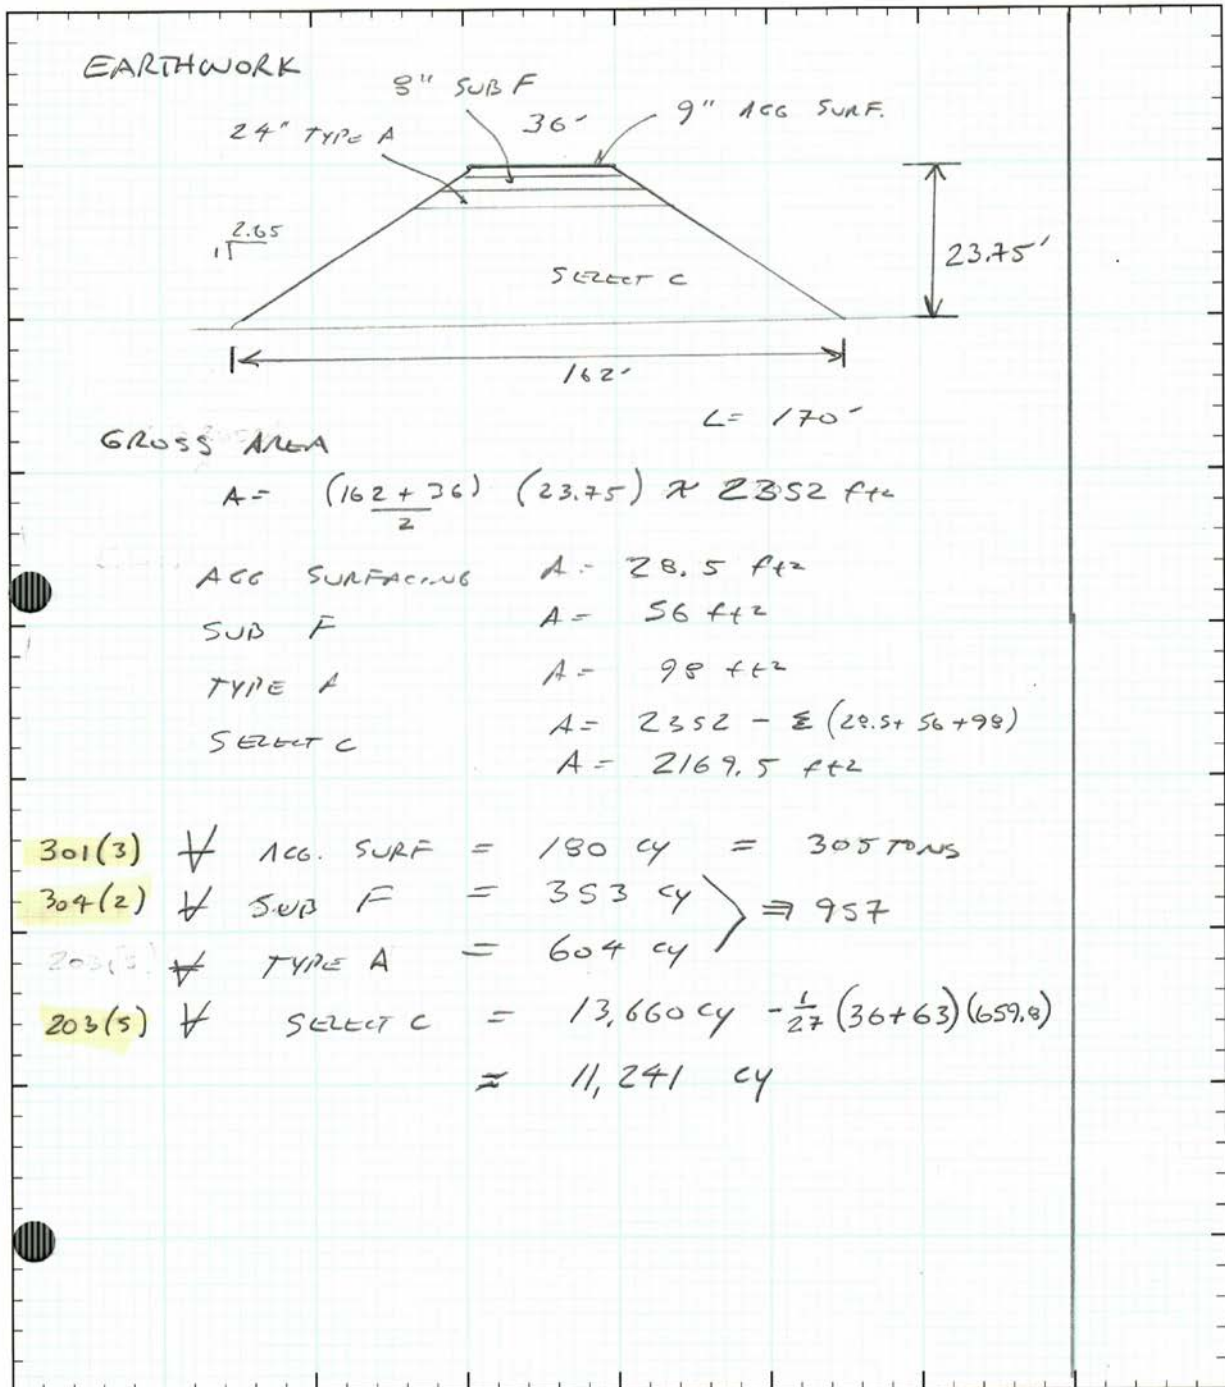 EARTHWORK
8" SUB F
36'
9" AGG SURF.
24" TYPE A
2.65
1
SELECT C
23.75'
162'
L= 170'
GROSS AREA
A= (162 + 36) (23.75) ≈ 2352 ft2
2
AGG SURFACING A= 28.5 ft2
SUB F A= 56 ft2
TYPE A A= 98 ft2
SELECT C A= 2352 - Σ (28.5+ 56 +98)
A= 2169.5 ft2
301(3) V AGG. SURF = 180 cy = 305 TONS
304(2) V SUB F = 353 cy ⇒ 957
203(5) V TYPE A = 604 cy
203(5) V SELECT C = 13,660 cy - 1/27 (36+63)(659.8)
≈ 11,241 cy